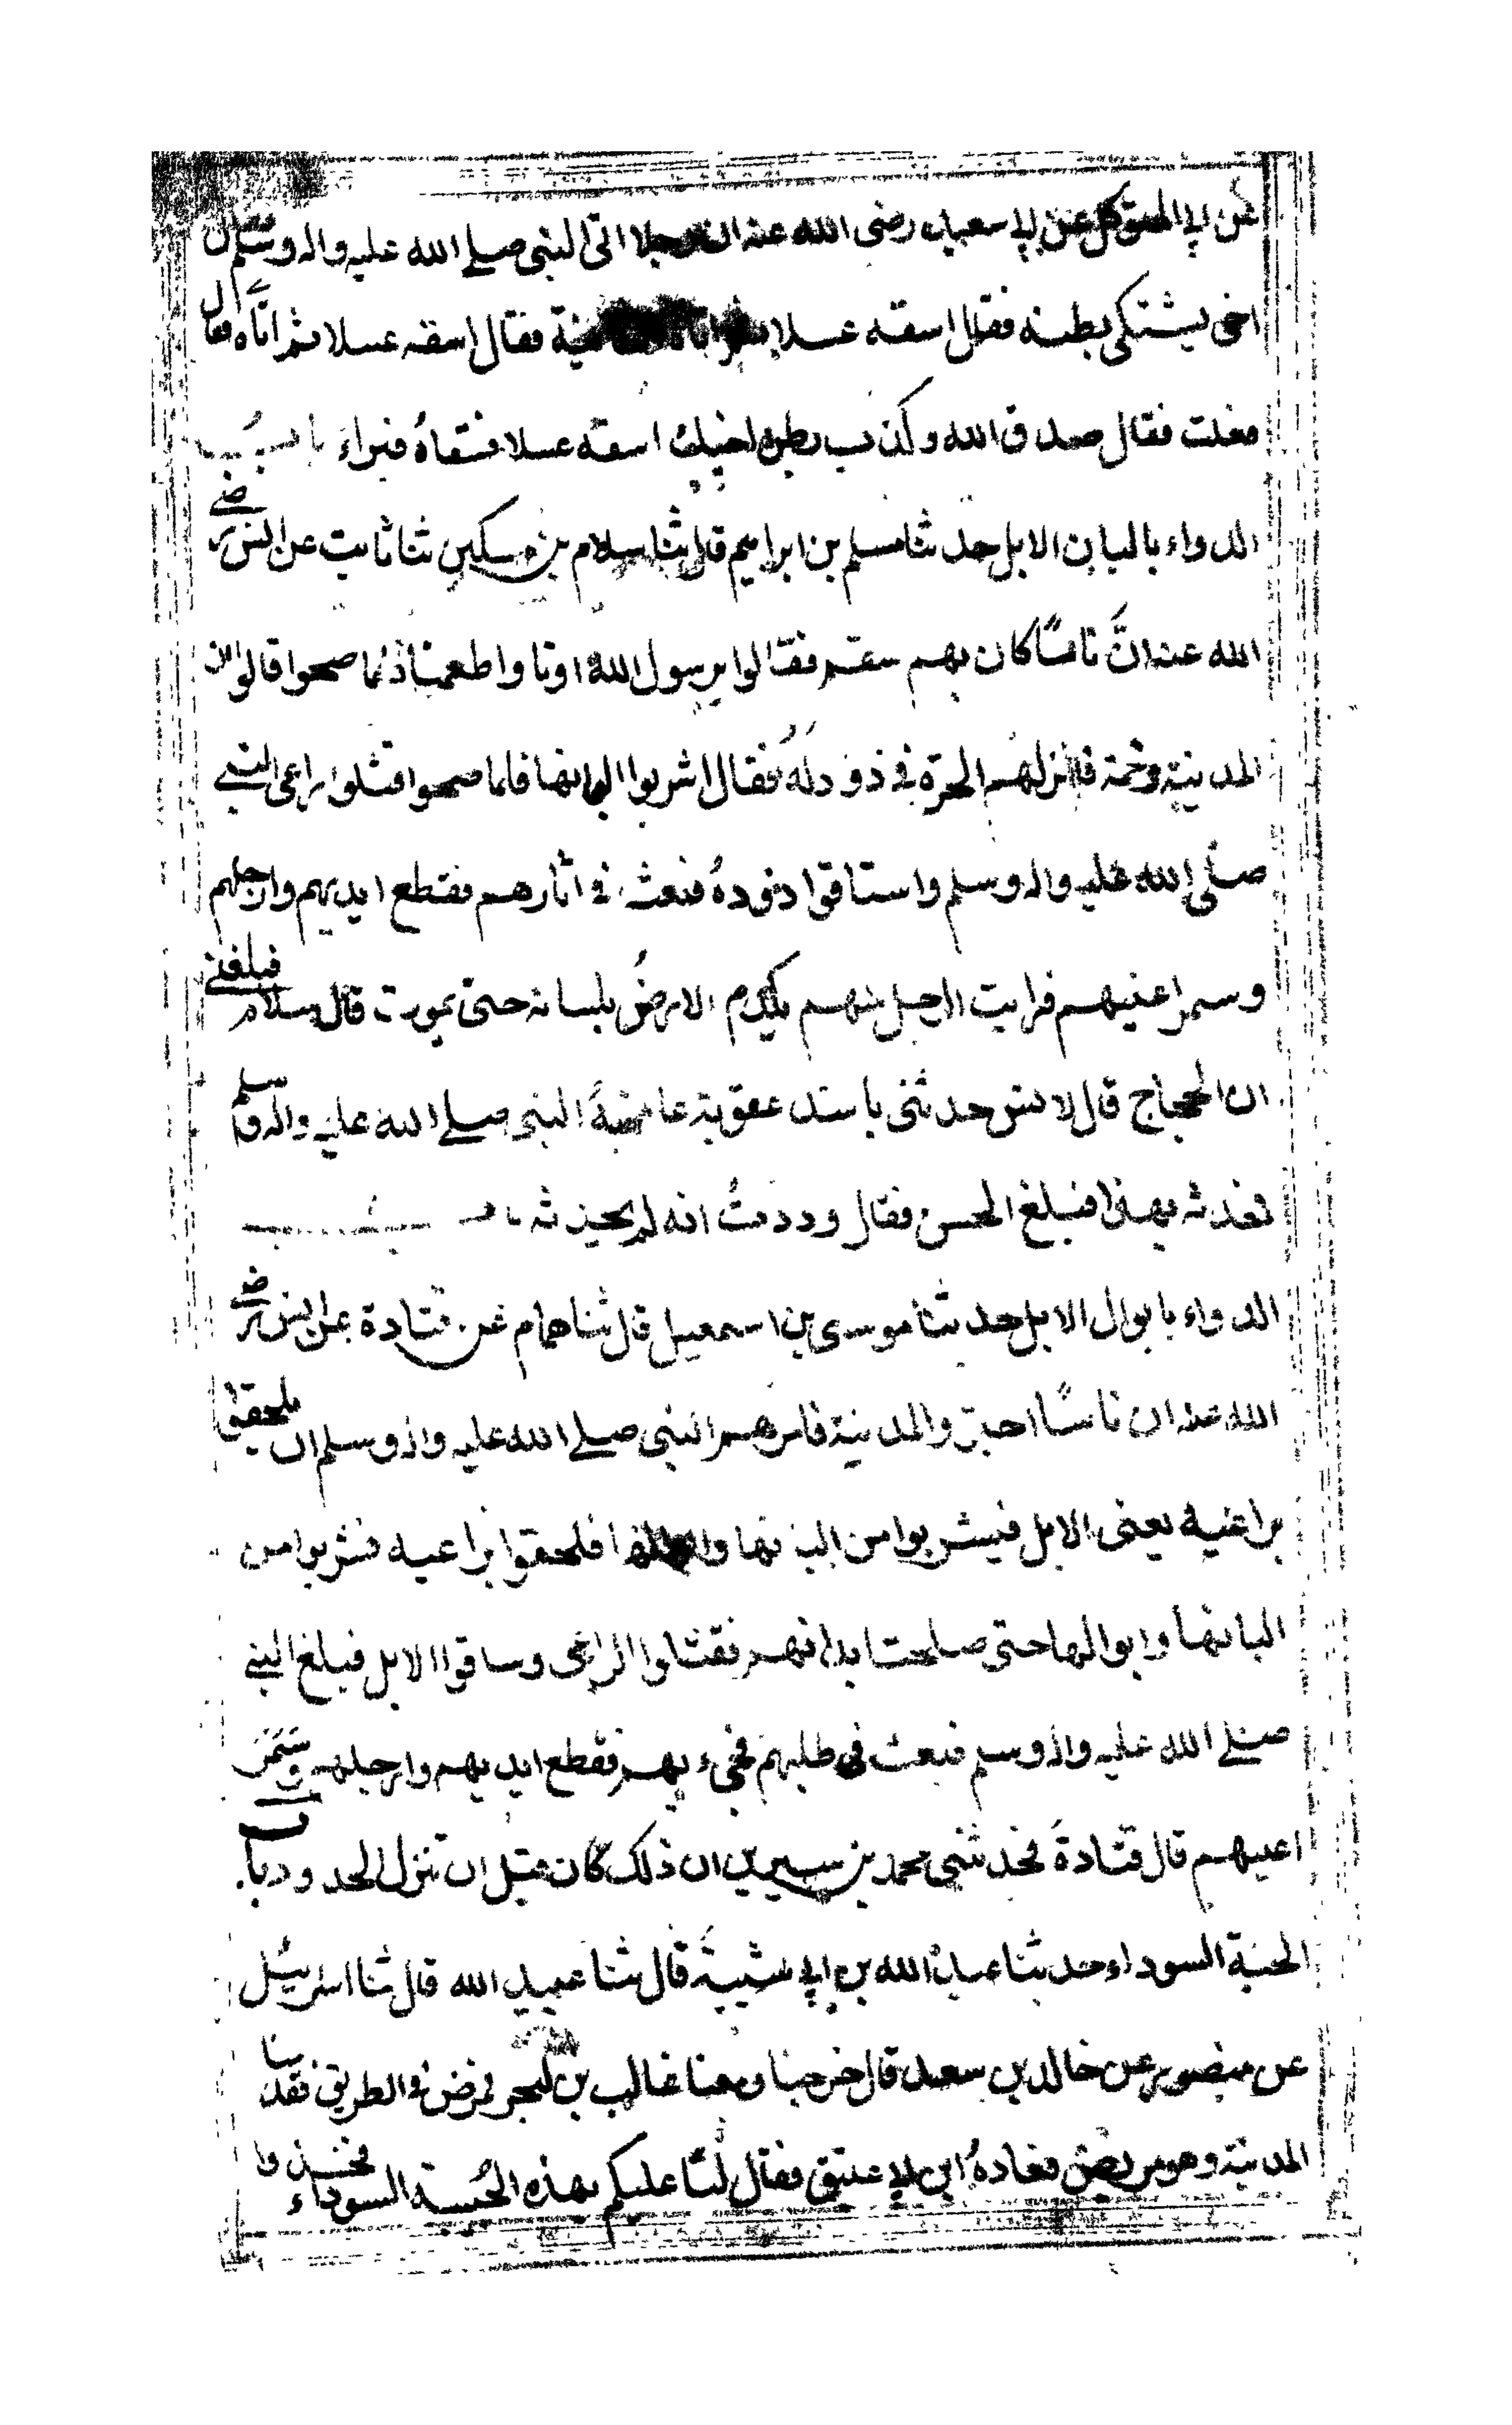 عن ابي المتوكل عن ابي سعيد رضى الله عنه ان رجلا اتى النبي صلے الله عليه واله وسلم قال
اخى يشتكى بطنه فقال اسقه عسلا ثم اتاه الثانية فقال اسقه عسلا ثم اتاه فقال
فعلت فقال صدق الله وكذب بطن اخيك اسقه عسلا فسقاه فبراء باب
الدواء بالبان الابل حدثنا مسلم بن ابراهيم قال ثنا سلام بن مسكين ثنا ثابت عن انس رضے
الله عنه انّ ناسًا كان بهم سقم فقالوا يرسول الله اونا واطعمنا فلما صحوا قالوا ان
المدينة وخمة فانزلهم الحرة في ذود له فقال اشربوا البانها فلما صحوا قتلوا راعى النبي
صلى الله عليه واله وسلم واستاقوا ذوده فبعث في اثارهم فقطع ايديهم وارجلهم
وسمر اعينهم فرايت الرجل منهم يكدم الارض بلسانه حتى يموت قال سلام فبلغنے
ان الحجاج قال لانس حدثنى باشد عقوبة عاقبهُ النبي صلے الله عليه واله وسلم
فحدثه بهذا فبلغ الحسن فقال وددتُ انه لم يحدثه باب
الدواء بابوال الابل حدثنا موسى بن اسمعيل قال ثنا همام عن قتادة عن انس رضے
الله عنه ان ناسًا اجتووا المدينة فامرهم النبي صلے الله عليه واله وسلم ان يلحقوا
براعيه يعنى الابل فيشربوا من البانها وابوالها فلحقوا براعيه فشربوا من
البانها وابوالها حتى صلحت ابدانهم فقتلوا الراعى وساقوا الابل فبلغ النبي
صلے الله عليه واله وسلم فبعث فى طلبهم فجىء بهم فقطع ايديهم وارجلهم وسَمَرَ
اعينهم قال قتادة فحدثنى محمد بن سيرين ان ذلك كان قبل ان تنزل الحدود باب
الحبة السوداء حدثنا عبد الله بن ابي شيبة قال ثنا عبيد الله قال ثنا اسرائيل
عن منصور عن خالد بن سعد قال خرجنا ومعنا غالب بن ابجر فمرض في الطريق فقدمنا
المدينة وهو مريض فعاده ابن ابي عتيق فقال لنا عليكم بهذه الحبيبة السوداء فخذوا